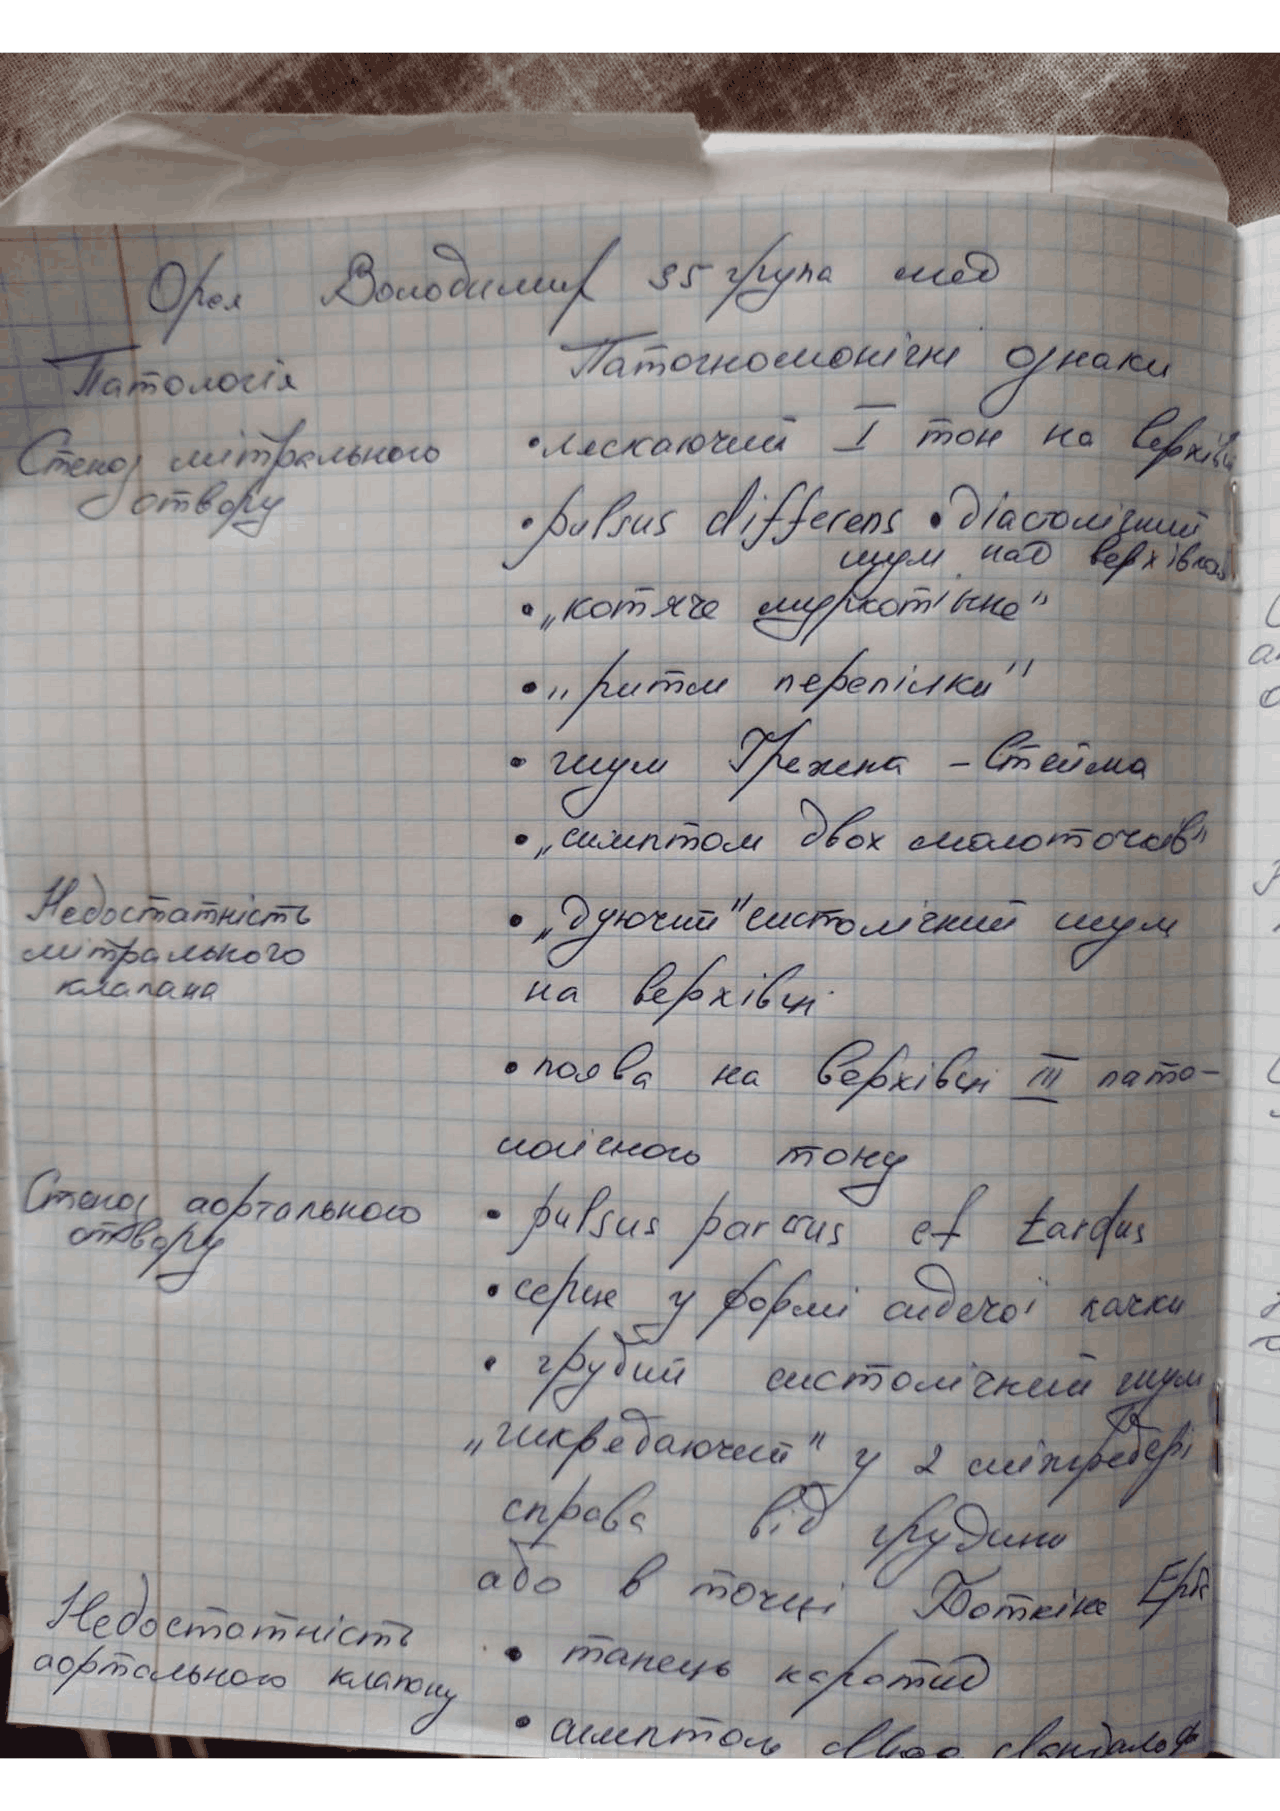 Орел Володимир 35 група мед
Патологія Патогномонічні ознаки
Стеноз мітрального
отвору
• ляскаючий I тон на верхівці
• pulsus differens • діастолічний
шум над верхівкою
• „котяче муркотіння"
• „ритм перепілки"
• шум Грехема - Стейма
• „симптом двох молоточків"
Недостатність
мітрального
клапана
• „дуючий" систолічний шум
на верхівці
• поява на верхівці III пато-
логічного тону
Стеноз аортального
отвору
• pulsus parvus et tardus
• серце у формі сидячої качки
• грубий систолічний шум
„шкрябаючий" у 2 міжребері
справа від грудини
або в точці Боткіна Ерба
Недостатність
аортального клапану
• танець каротид
• симптом